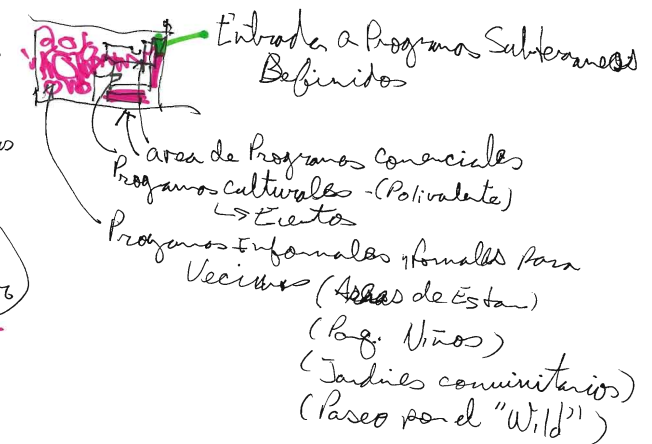 Entrada a Programas Subterraneos
Definidos
area de Programas Comerciales
Programas culturales - (Polivalente)
↳ Eventos
Programas Informales, formales para
Vecinos (Areas de Estar)
(Parq. Niños)
(Jardines comunitarios)
(Paseo por el "Wild")